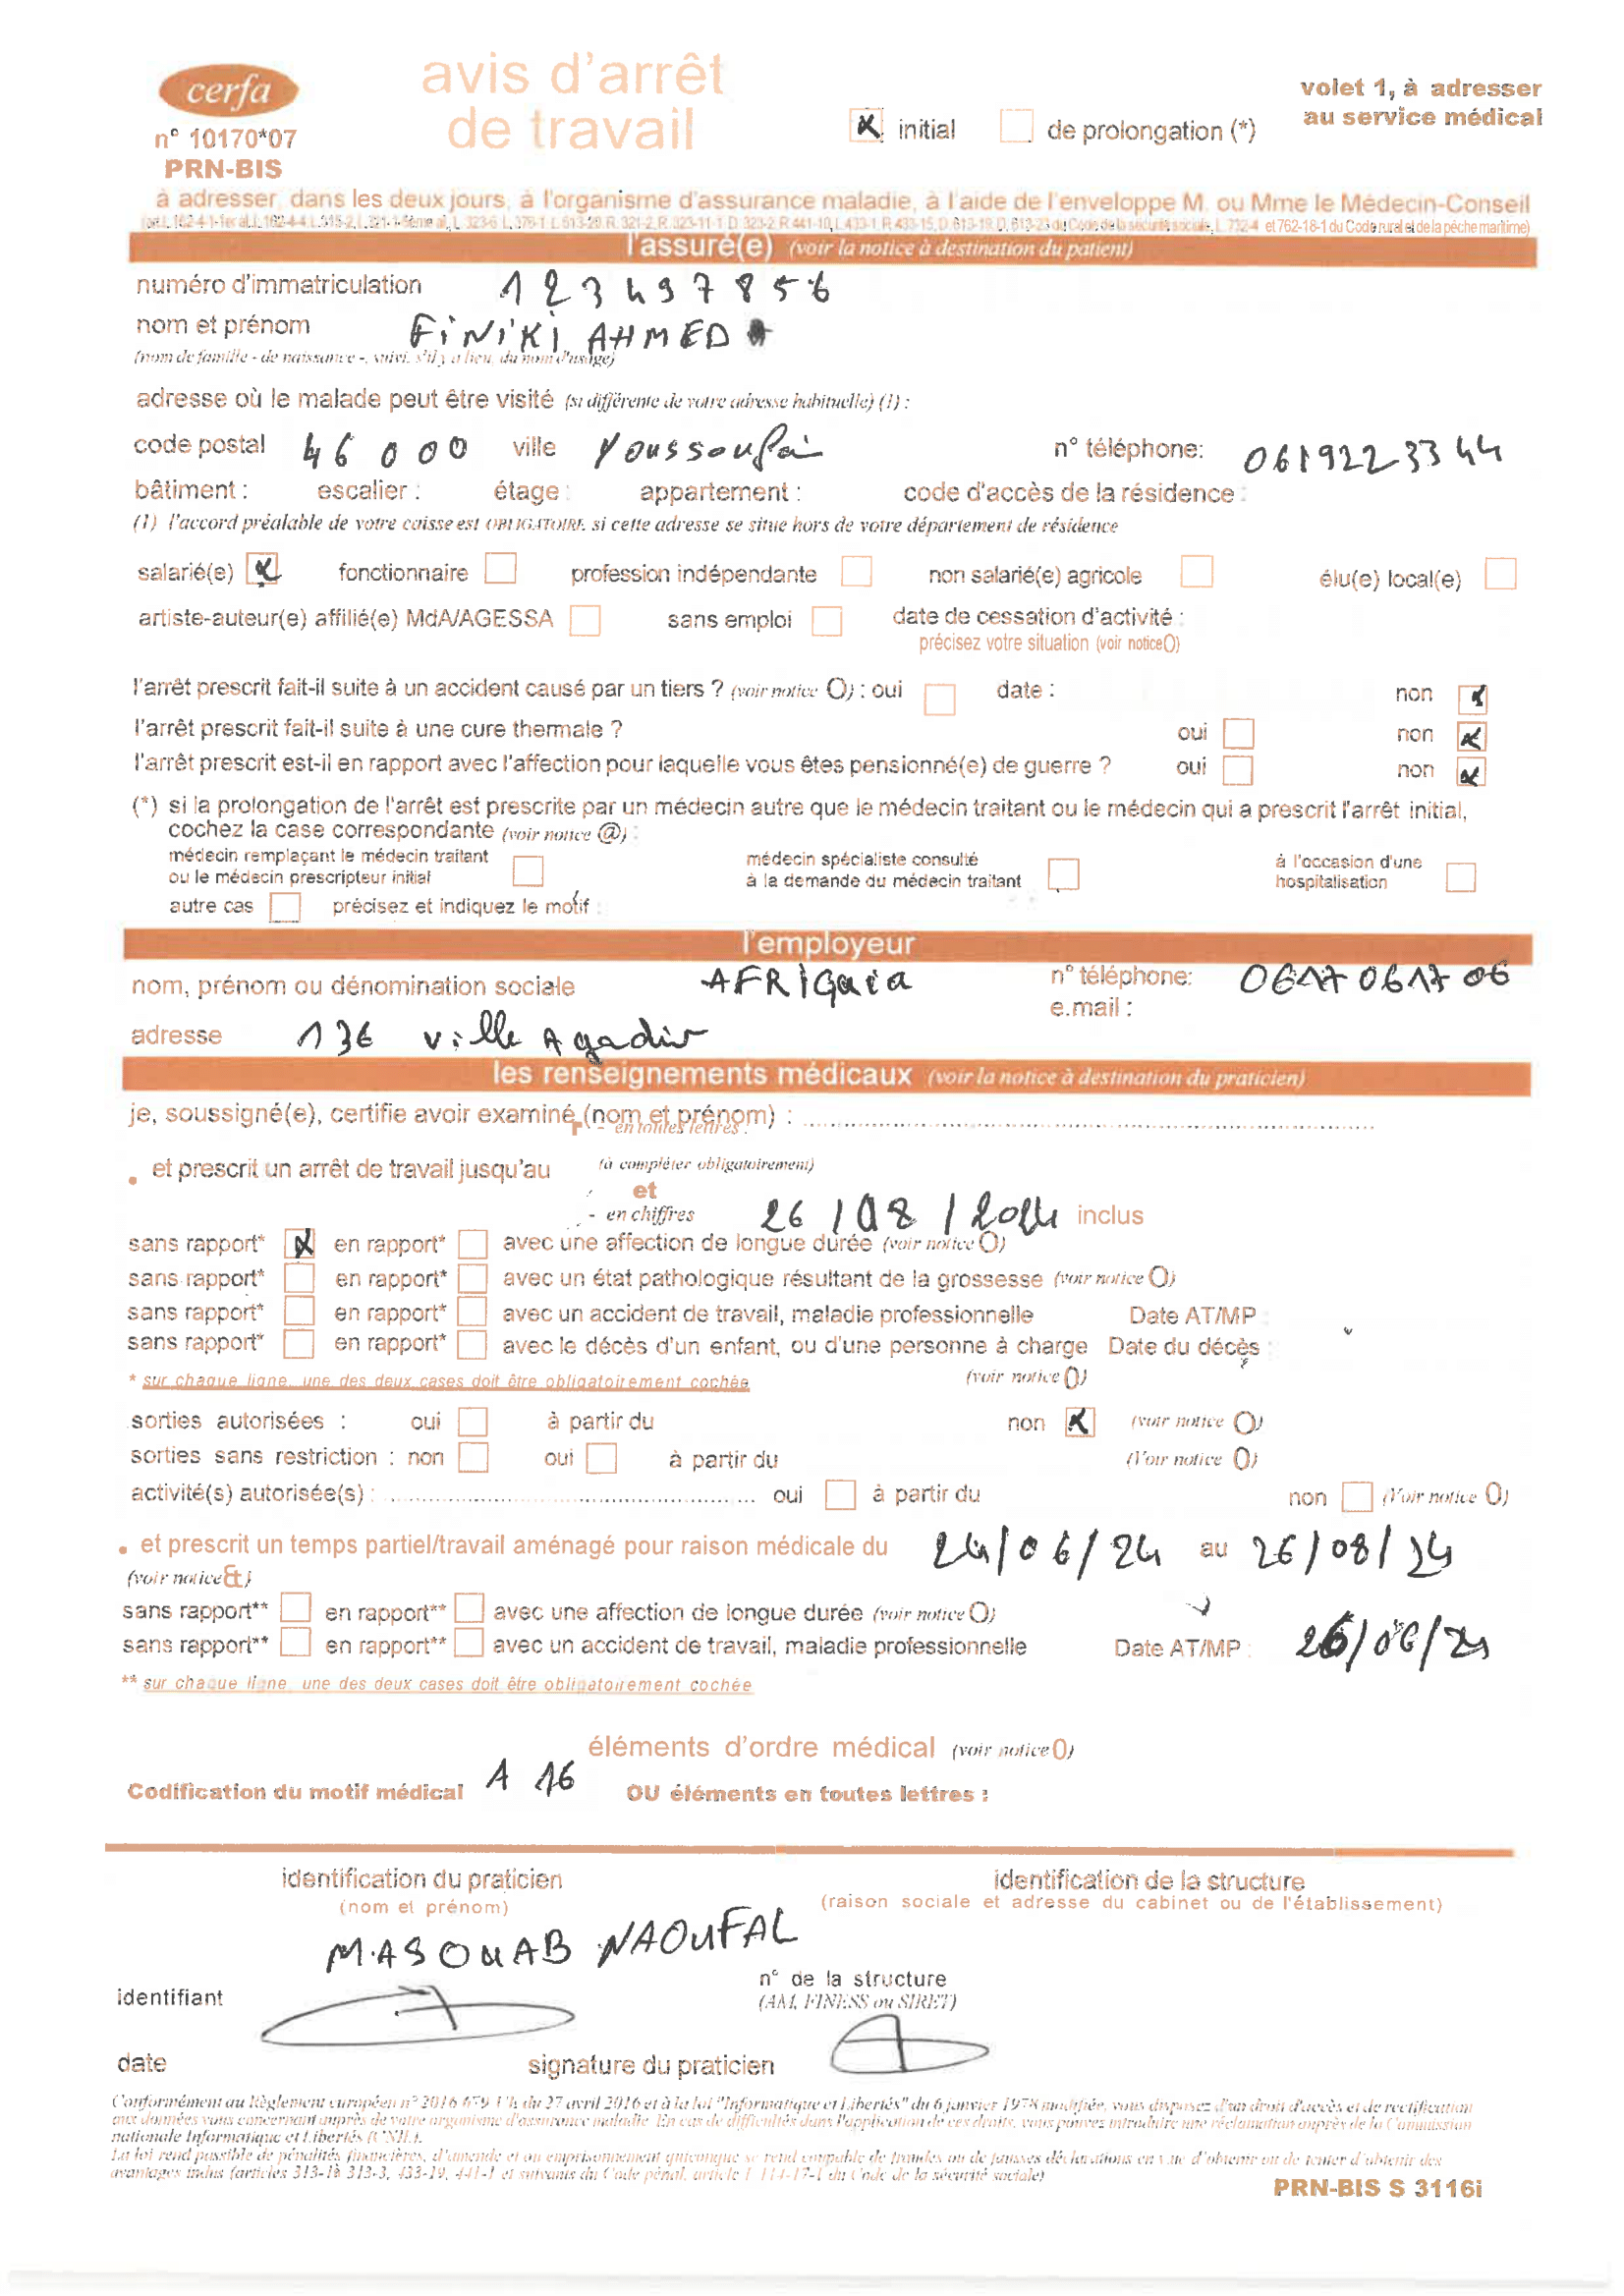 cerfa
n° 10170*07
PRN-BIS
avis d'arrêt
de travail
initial
de prolongation (*)
volet 1, à adresser
au service médical
à adresser, dans les deux jours, à l'organisme d'assurance maladie, à l'aide de l'enveloppe M. ou Mme le Médecin-Conseil
et 762-18-1 du Code rural et de la pêche maritime)
l'assuré(e) (voir la notice à destination du patient)
numéro d'immatriculation 123497856
nom et prénom FINIKI AHMED
(nom de famille - de naissance -, suivi, s'il y a lieu, du nom d'usage)
adresse où le malade peut être visité (si différente de votre adresse habituelle) (1) :
code postal 46000 ville Youssoufia n° téléphone: 0619223344
bâtiment : escalier : étage : appartement : code d'accès de la résidence :
(1) l'accord préalable de votre caisse est OBLIGATOIRE si cette adresse se situe hors de votre département de résidence
salarié(e) fonctionnaire profession indépendante non salarié(e) agricole élu(e) local(e)
artiste-auteur(e) affilié(e) MdA/AGESSA sans emploi date de cessation d'activité :
précisez votre situation (voir notice())
l'arrêt prescrit fait-il suite à un accident causé par un tiers ? (voir notice O) : oui date : non
l'arrêt prescrit fait-il suite à une cure thermale ? oui non
l'arrêt prescrit est-il en rapport avec l'affection pour laquelle vous êtes pensionné(e) de guerre ? oui non
(*) si la prolongation de l'arrêt est prescrite par un médecin autre que le médecin traitant ou le médecin qui a prescrit l'arrêt initial,
cochez la case correspondante (voir notice @) :
médecin remplaçant le médecin traitant
ou le médecin prescripteur initial
médecin spécialiste consulté
à la demande du médecin traitant
à l'occasion d'une
hospitalisation
autre cas précisez et indiquez le motif :
l'employeur
nom, prénom ou dénomination sociale AFRIGaia n° téléphone: 0617061706
e.mail :
adresse 136 ville Agadir
les renseignements médicaux (voir la notice à destination du praticien)
je, soussigné(e), certifie avoir examiné (nom et prénom) :
- en toutes lettres :
et prescrit un arrêt de travail jusqu'au (à compléter obligatoirement)
et
- en chiffres 26/08/2024 inclus
sans rapport* en rapport* avec une affection de longue durée (voir notice O)
sans rapport* en rapport* avec un état pathologique résultant de la grossesse (voir notice O)
sans rapport* en rapport* avec un accident de travail, maladie professionnelle Date AT/MP :
sans rapport* en rapport* avec le décès d'un enfant, ou d'une personne à charge Date du décès :
* sur chaque ligne, une des deux cases doit être obligatoirement cochée (voir notice ())
sorties autorisées : oui à partir du non (voir notice O)
sorties sans restriction : non oui à partir du (Voir notice O)
activité(s) autorisée(s) : oui à partir du non (Voir notice O)
et prescrit un temps partiel/travail aménagé pour raison médicale du 24/06/24 au 26/08/24
(voir notice &)
sans rapport** en rapport** avec une affection de longue durée (voir notice O)
sans rapport** en rapport** avec un accident de travail, maladie professionnelle Date AT/MP : 26/06/24
** sur chaque ligne, une des deux cases doit être obligatoirement cochée
éléments d'ordre médical (voir notice O)
Codification du motif médical A 16 OU éléments en toutes lettres :
identification du praticien
(nom et prénom)
identification de la structure
(raison sociale et adresse du cabinet ou de l'établissement)
MASOUAB NAOUFAL
identifiant
n° de la structure
(AM, FINESS ou SIRET)
date
signature du praticien
Conformément au Règlement européen n° 2016/679/UE du 27 avril 2016 et à la loi "Informatique et Libertés" du 6 janvier 1978 modifiée, vous disposez d'un droit d'accès et de rectification
aux données vous concernant auprès de votre organisme d'assurance maladie. En cas de difficultés dans l'application de ces droits, vous pouvez introduire une réclamation auprès de la Commission
nationale Informatique et Libertés (CNIL).
La loi rend passible de pénalités financières, d'amende et ou emprisonnement quiconque se rend coupable de fraudes ou de fausses déclarations en vue d'obtenir ou de tenter d'obtenir des
avantages indus (articles 313-1à 313-3, 433-19, 441-1 et suivants du Code pénal, article L 114-17-1 du Code de la sécurité sociale)
PRN-BIS S 3116i